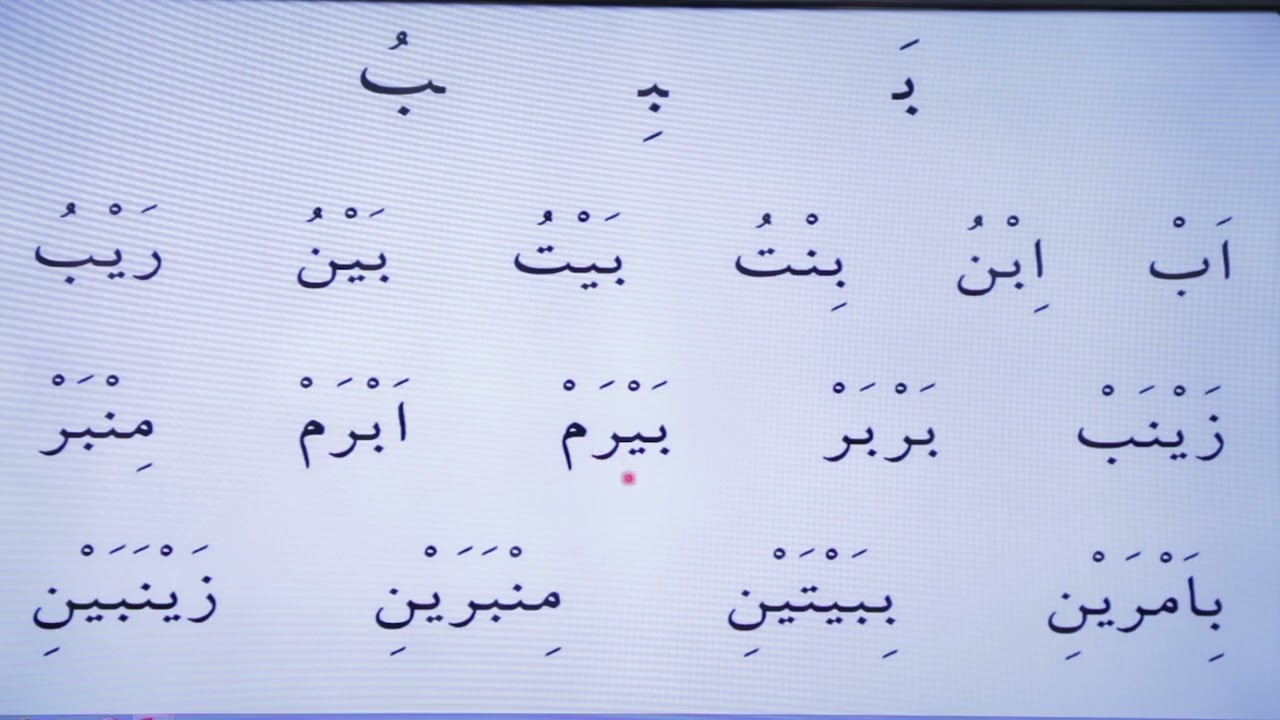 بَـ ـبِـ ـبُ
اَبْ اِبْنُ بِنْتُ بَيْتُ بَيْنُ رَيْبُ
زَيْنَبْ بَرْبَرْ بَيْرَمْ اَبْرَمْ مِنْبَرْ
بِاَمْرَيْنِ بِبَيْتَيْنِ مِنْبَرَيْنِ زَيْنَبَيْنِ